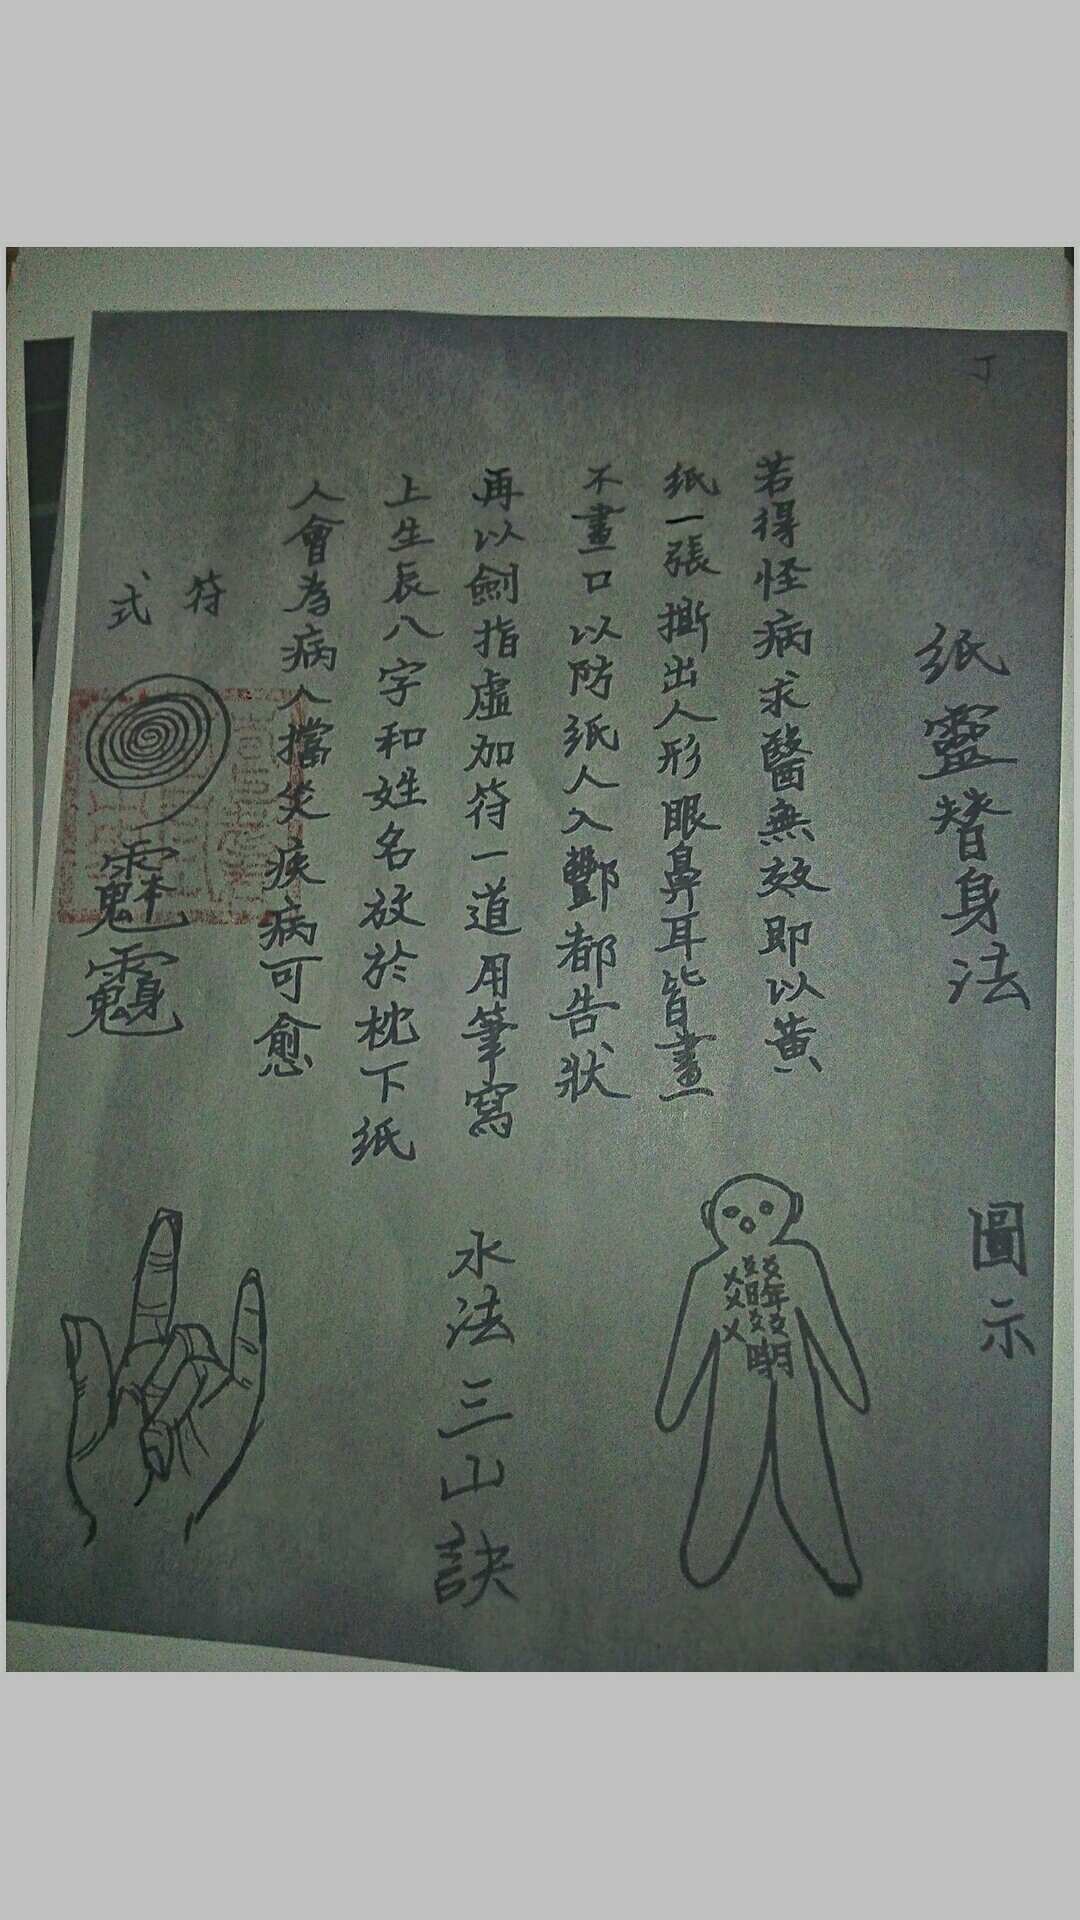 紙靈替身法
若得怪病求醫無效即以黃
紙一張撕出人形眼鼻耳皆畫
不畫口以防紙人入酆都告狀
再以劍指虛加符一道用筆寫
上生辰八字和姓名放於枕下紙
人會為病人擋災疾病可愈
符
式
圖示
水法三山訣